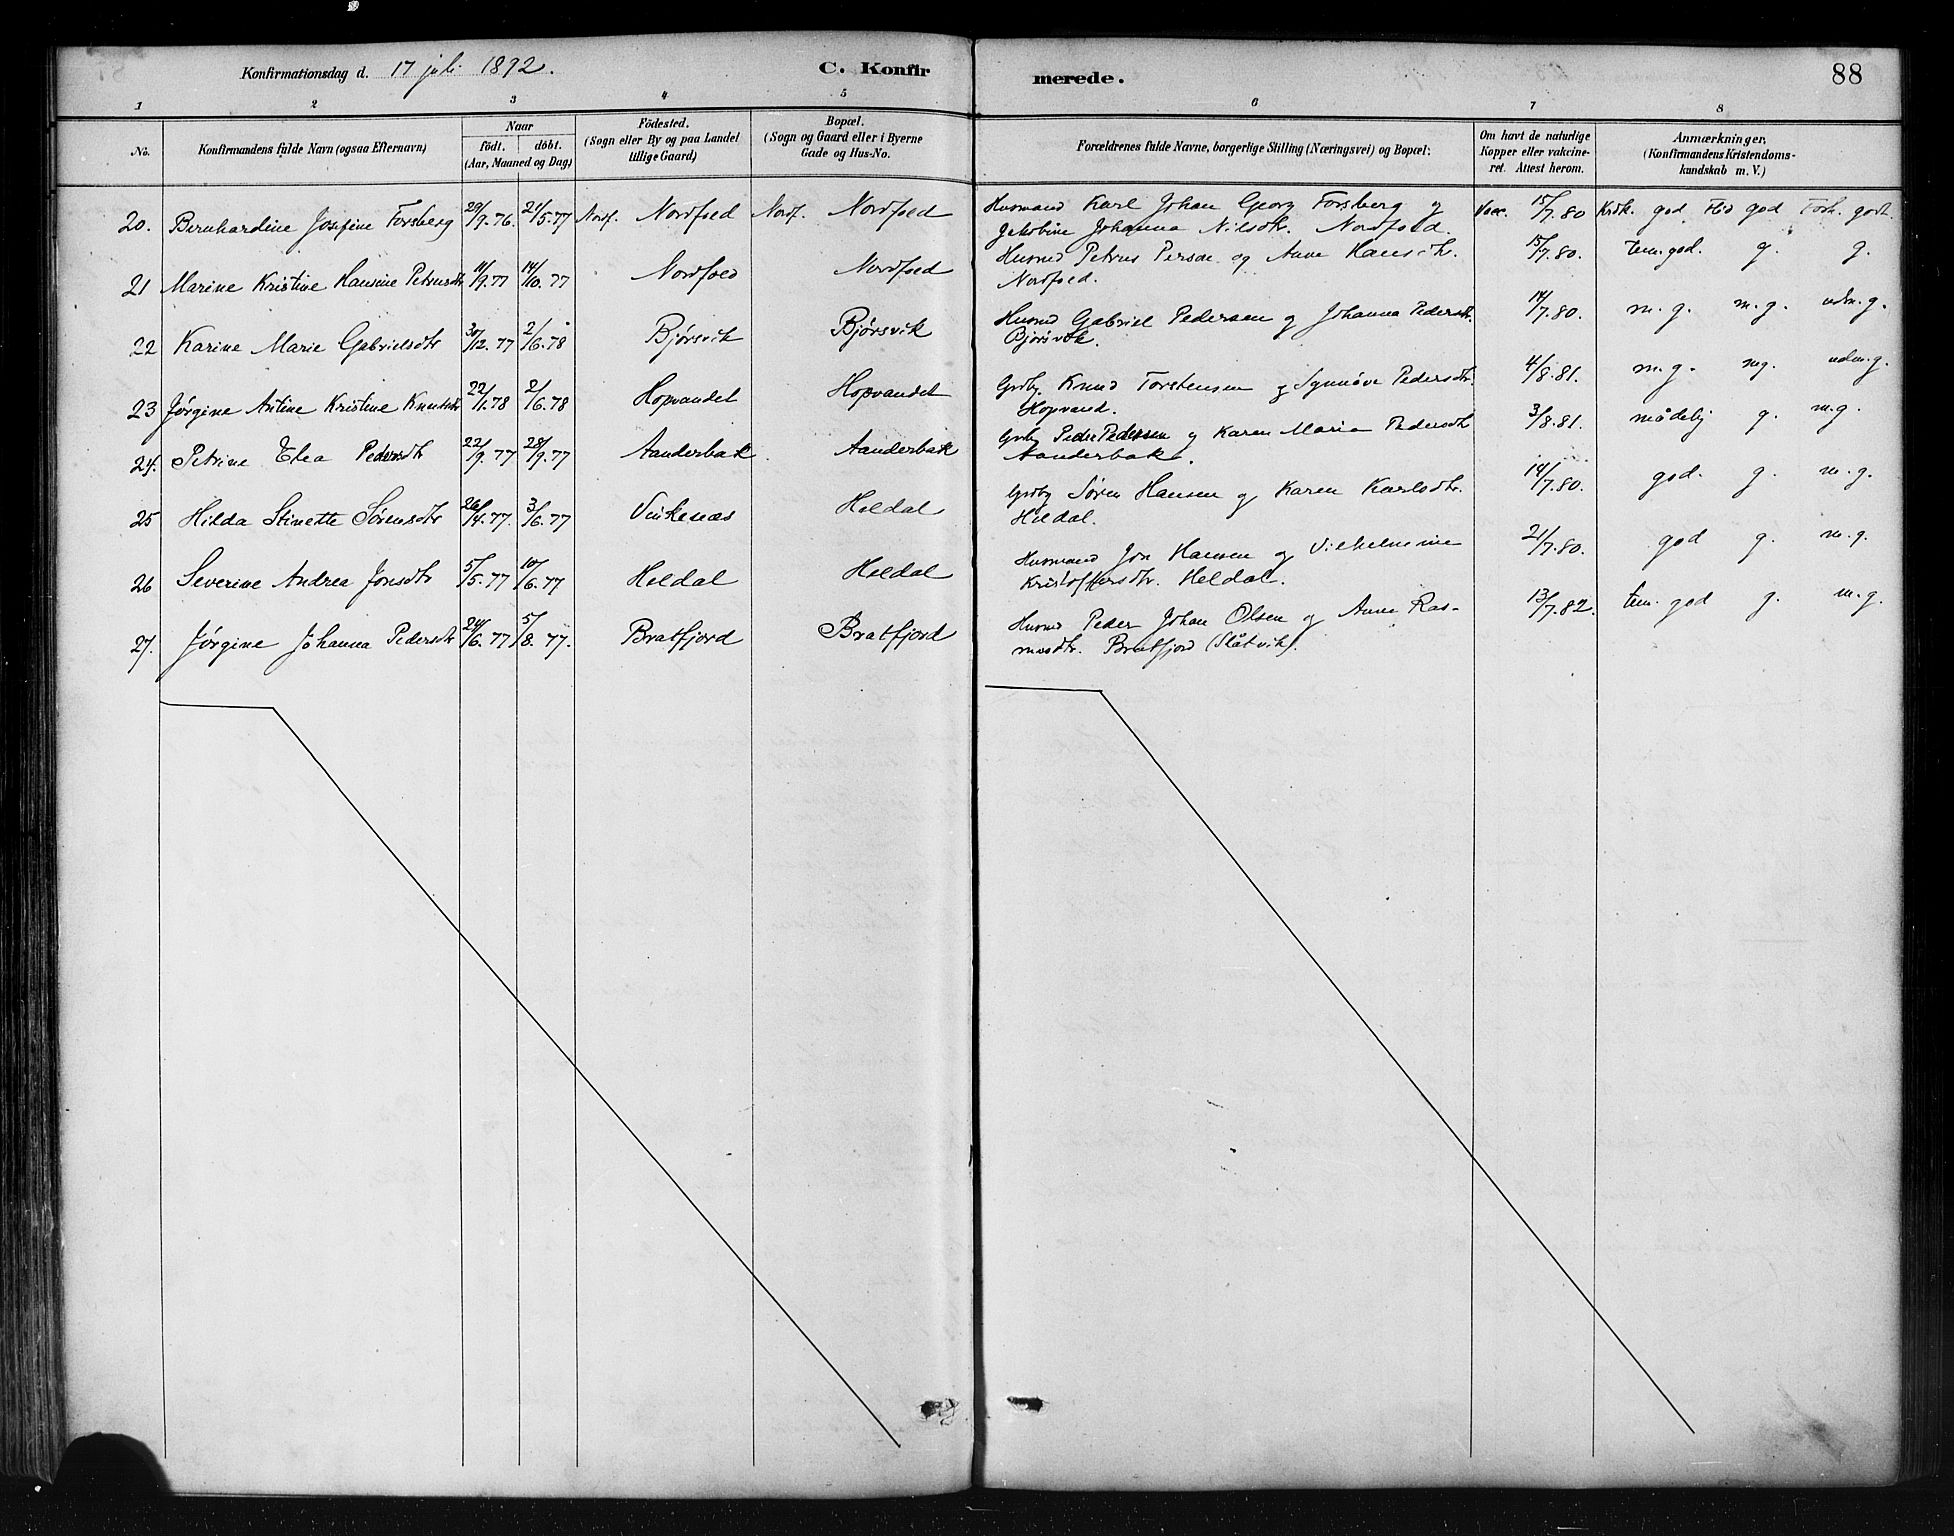 Konfirmationsdag d. 17 juli 1892. C. Konfir merede. 88
1 2 3 4 5 6 7 8
No. Konfirmandens fulde Navn (ogsaa Efternavn) Naar födt. döbt. (Aar, Maaned og Dag) Födested. (Sogn eller By og paa Landet tillige Gaard) Bopæl. (Sogn og Gaard eller i Byerne Gade og Hus-No. Forældrenes fulde Navne, borgerlige Stilling (Næringsvei) og Bopæl: Om havt de naturlige Kopper eller vakcineret. Attest herom. Anmærkninger, (Konfirmandens Kristendomskundskab m. V.)
20. Bernhardine Josefine Forsberg 29/9. 76. 21/5. 77 Nordf. Nordfold Nordf. Nordfold Husmand Karl Johan Georg Forsberg og Vacc. 15/7. 80 Krdk. god Flid god Forh. godt.
Jakobine Johanna Nilsdtr. Nordfold.
21 Marine Kristine Hansine Petrusdtr 11/9. 77 14/10. 77 Nordfold Nordfold Husmd Petrus Persen og Anne Hansdtr. 15/7. 80. tem. god. g. g.
Nordfold.
22 Karine Marie Gabrielsdtr 30/12. 77 2/6. 78 Bjørsvik Bjørsvik Husmd Gabriel Pedersen og Johanna Pedersdtr. 14/7. 80. m. g. m. g. udm. g.
Bjørsvik.
23 Jørgine Antine Kristine Knudsdtr 22/1. 78 2/6. 78 Hopvandet Hopvandet Grdbg. Knud Torstensen og Synnøve Pedersdtr. 4/8. 81. m. g. mg. udm. g.
Hopvand.
24. Petrine Elea Pedersdtr 22/9. 77 28/9. 77 Aanderbak. Aanderbak Grdbg Peder Pedersen og Karen Maria Pedersdtr 3/8. 81. mådelig g. m. g.
Aanderbak.
25 Hilda Stinette Sørensdtr 26/4. 77. 3/6. 77 Vinkenæs Heldal Grdbg Søren Hansen og Karen Karlsdtr. 14/7. 80. god. g. m. g.
Heldal.
26 Severine Andrea Jonsdtr 5/5. 77 10/6. 77 Heldal Heldal Husmand Jon Hansen og Vilhelmine 21/7. 80. god g. m. g.
Kristoffersdtr. Heldal.
27. Jørgine Johanna Pedersdtr 24/6. 77 5/8. 77. Bratfjord Bratfjord Husmd Peder Johan Olsen og Anne Ras- 13/7. 82. tem. god g. m. g.
musdtr. Bratfjord (Slåtvik).